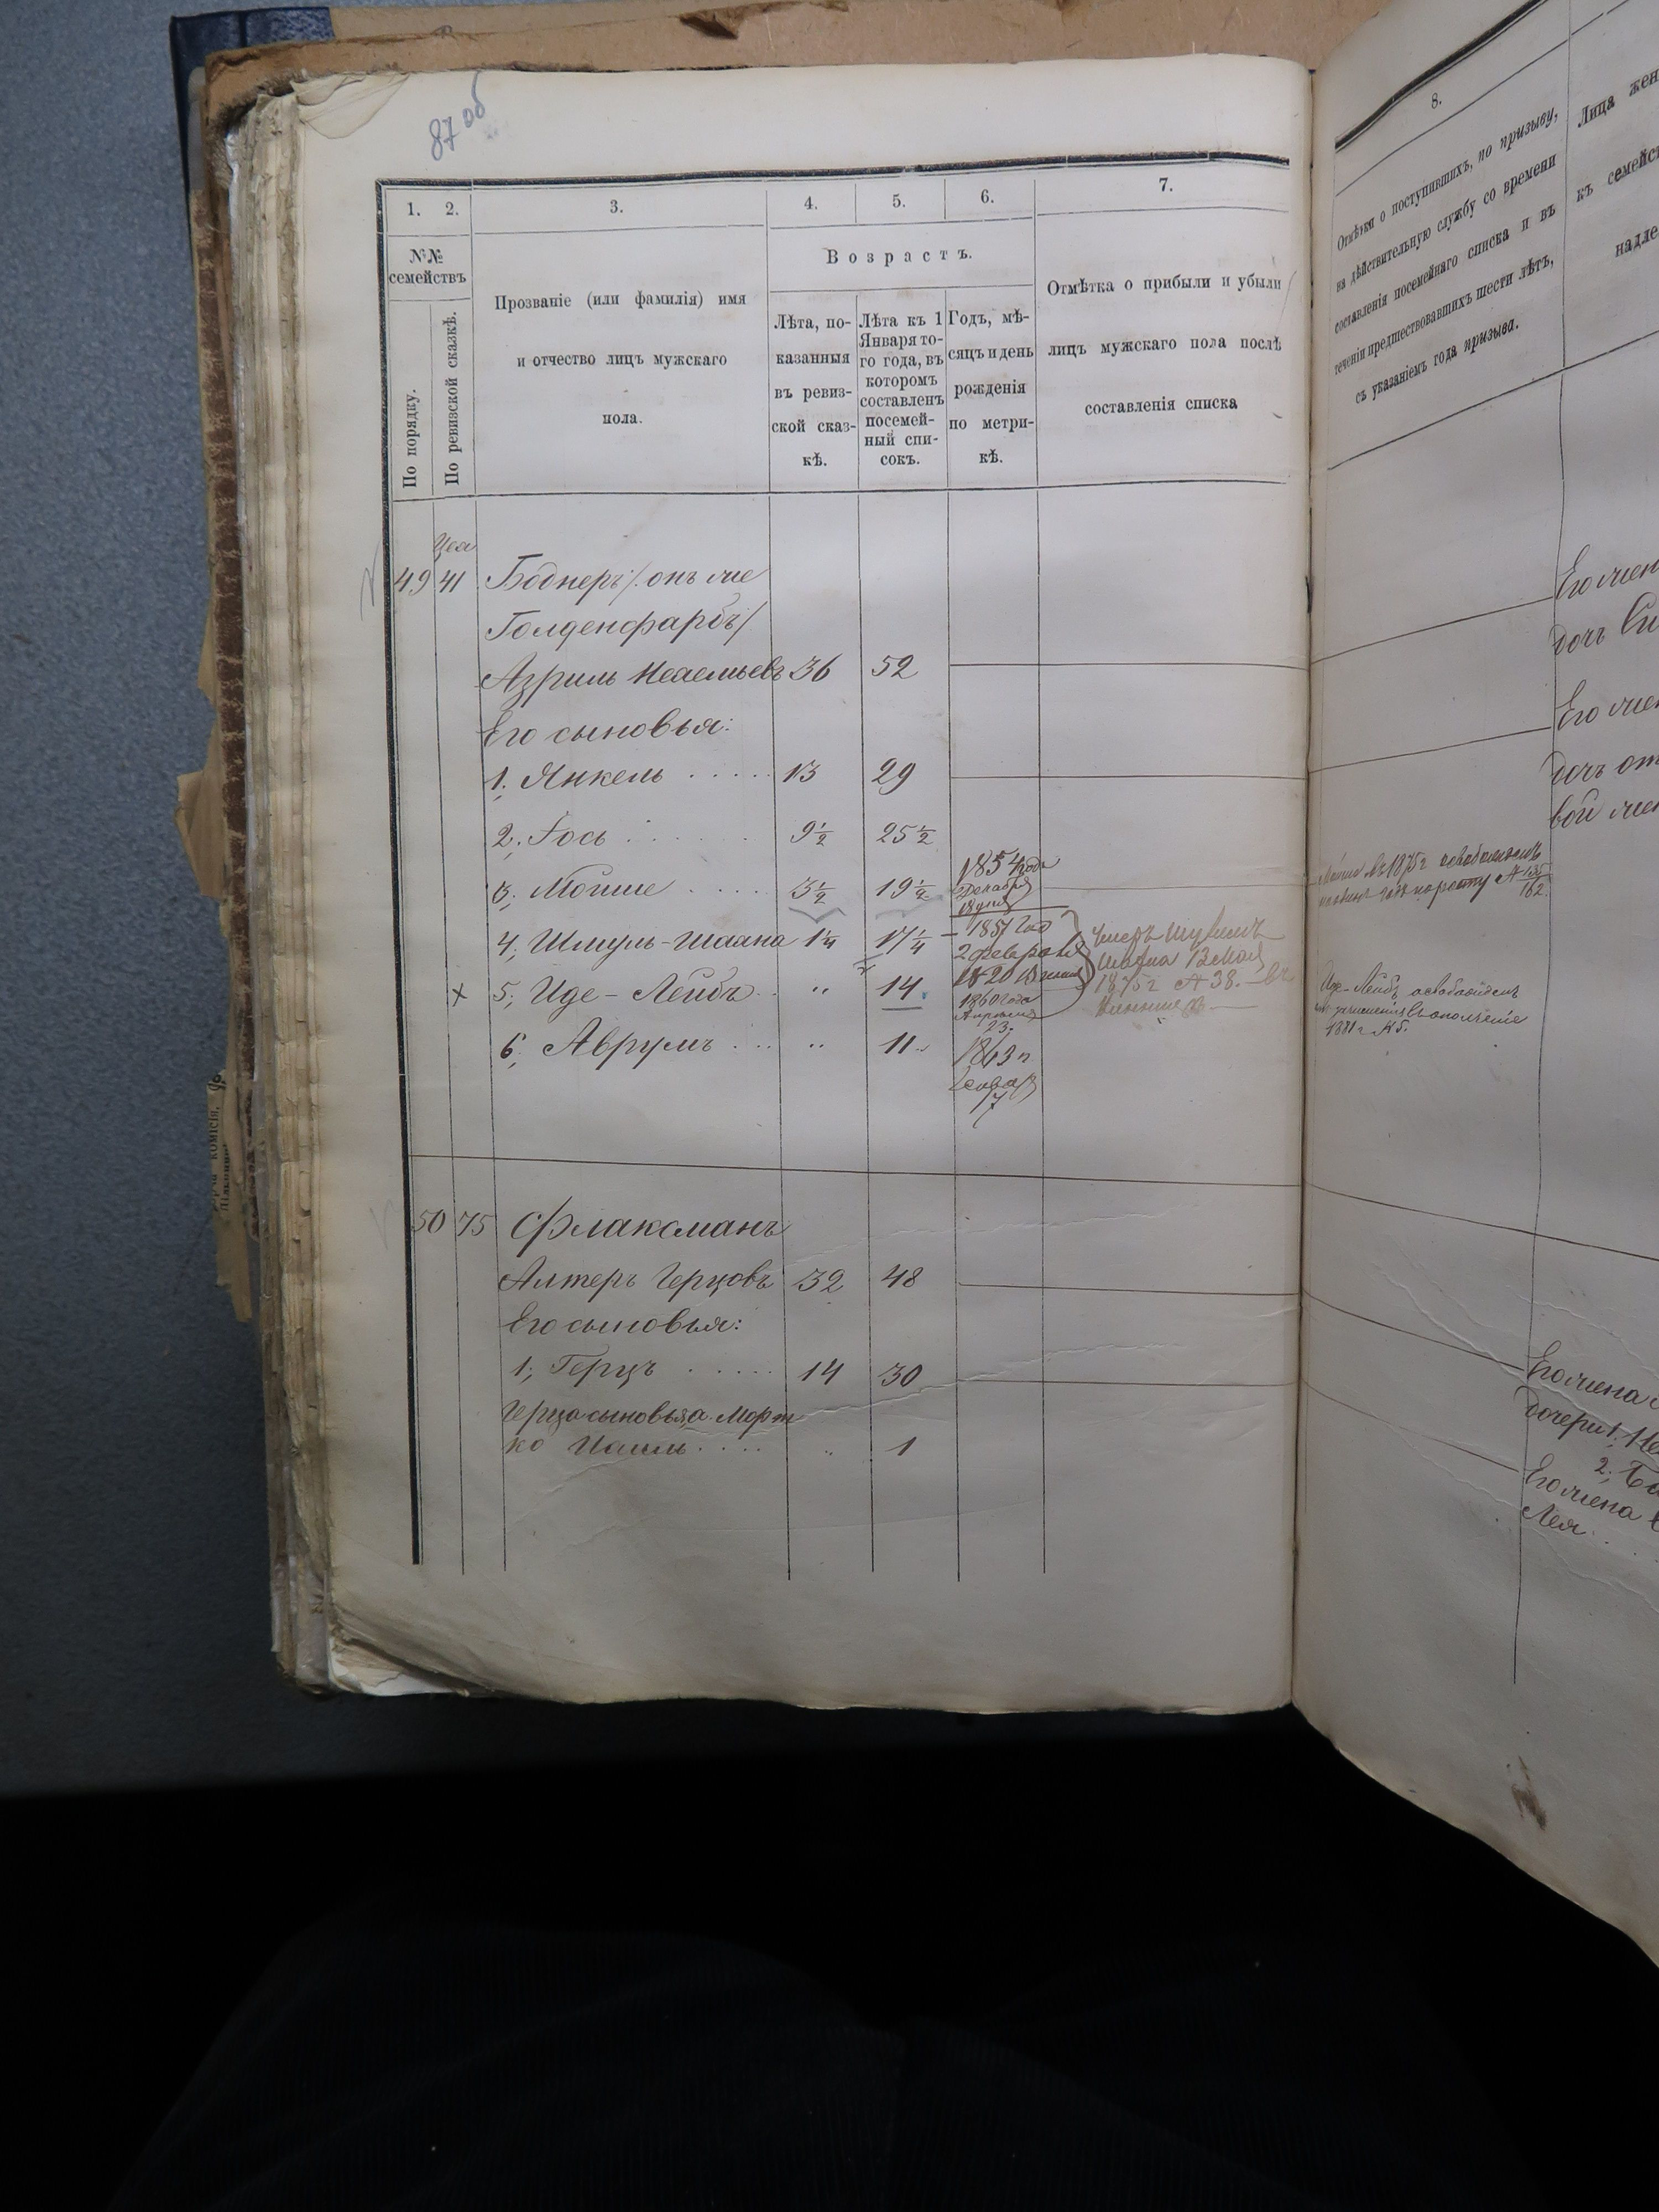 87 об
1. 2. 3. 4. 5. 6. 7.
№№ семействъ
По порядку.
По ревизской сказкѣ.
Прозваніе (или фамилія) имя
и отчество лицъ мужскаго
пола.
Возрастъ.
Лѣта, по-
казанныя
въ ревиз-
ской сказ-
кѣ.
Лѣта къ 1
Января то-
го года, въ
котором­ъ
составленъ
посемей-
ный спи-
сокъ.
Годъ, мѣ-
сяцъ и день
рожденія
по метри-
кѣ.
Отмѣтка о прибыли и убыли
лицъ мужскаго пола послѣ
составленія списка
49 41 Боднеръ /. онъ же
Голденфарбъ /
Азриль 36 52
Его сыновья:
1. Янкель 13 29
2. Іось 9½ 25½
3. Мошше 3½ 19½ 1854 года
Декабря
18 дня
4. Шмуль-Шаана 1¼ 17¼ 1857 год
2 февраля
5. Иде-Лейбъ „ 14 1860 года
Апреля
23.
1875 г № 38.
6. Аврумъ „ 11 1863 г.
Январ
7
50 75 Флаксманъ
Алтеръ Герцовъ 32 48
Его сыновья:
1, Герцъ 14 30
Герца сыновья а. Морт
ко „ 1
8.
Отмѣтка о поступившихъ, по призыву,
на дѣйствительную службу со времени
составленія посемейнаго списка и въ
теченіи предшествовавшихъ шести лѣтъ,
съ указаніемъ года призыва.
Лица жен
къ семейст
надле
Его жен
дочь
Его жен
дочь от
вой жен
1875 г
Иде-Лейбъ
1881 г. №5.
Его жена
дочери 1.
2. Ба
Его жена
Лея